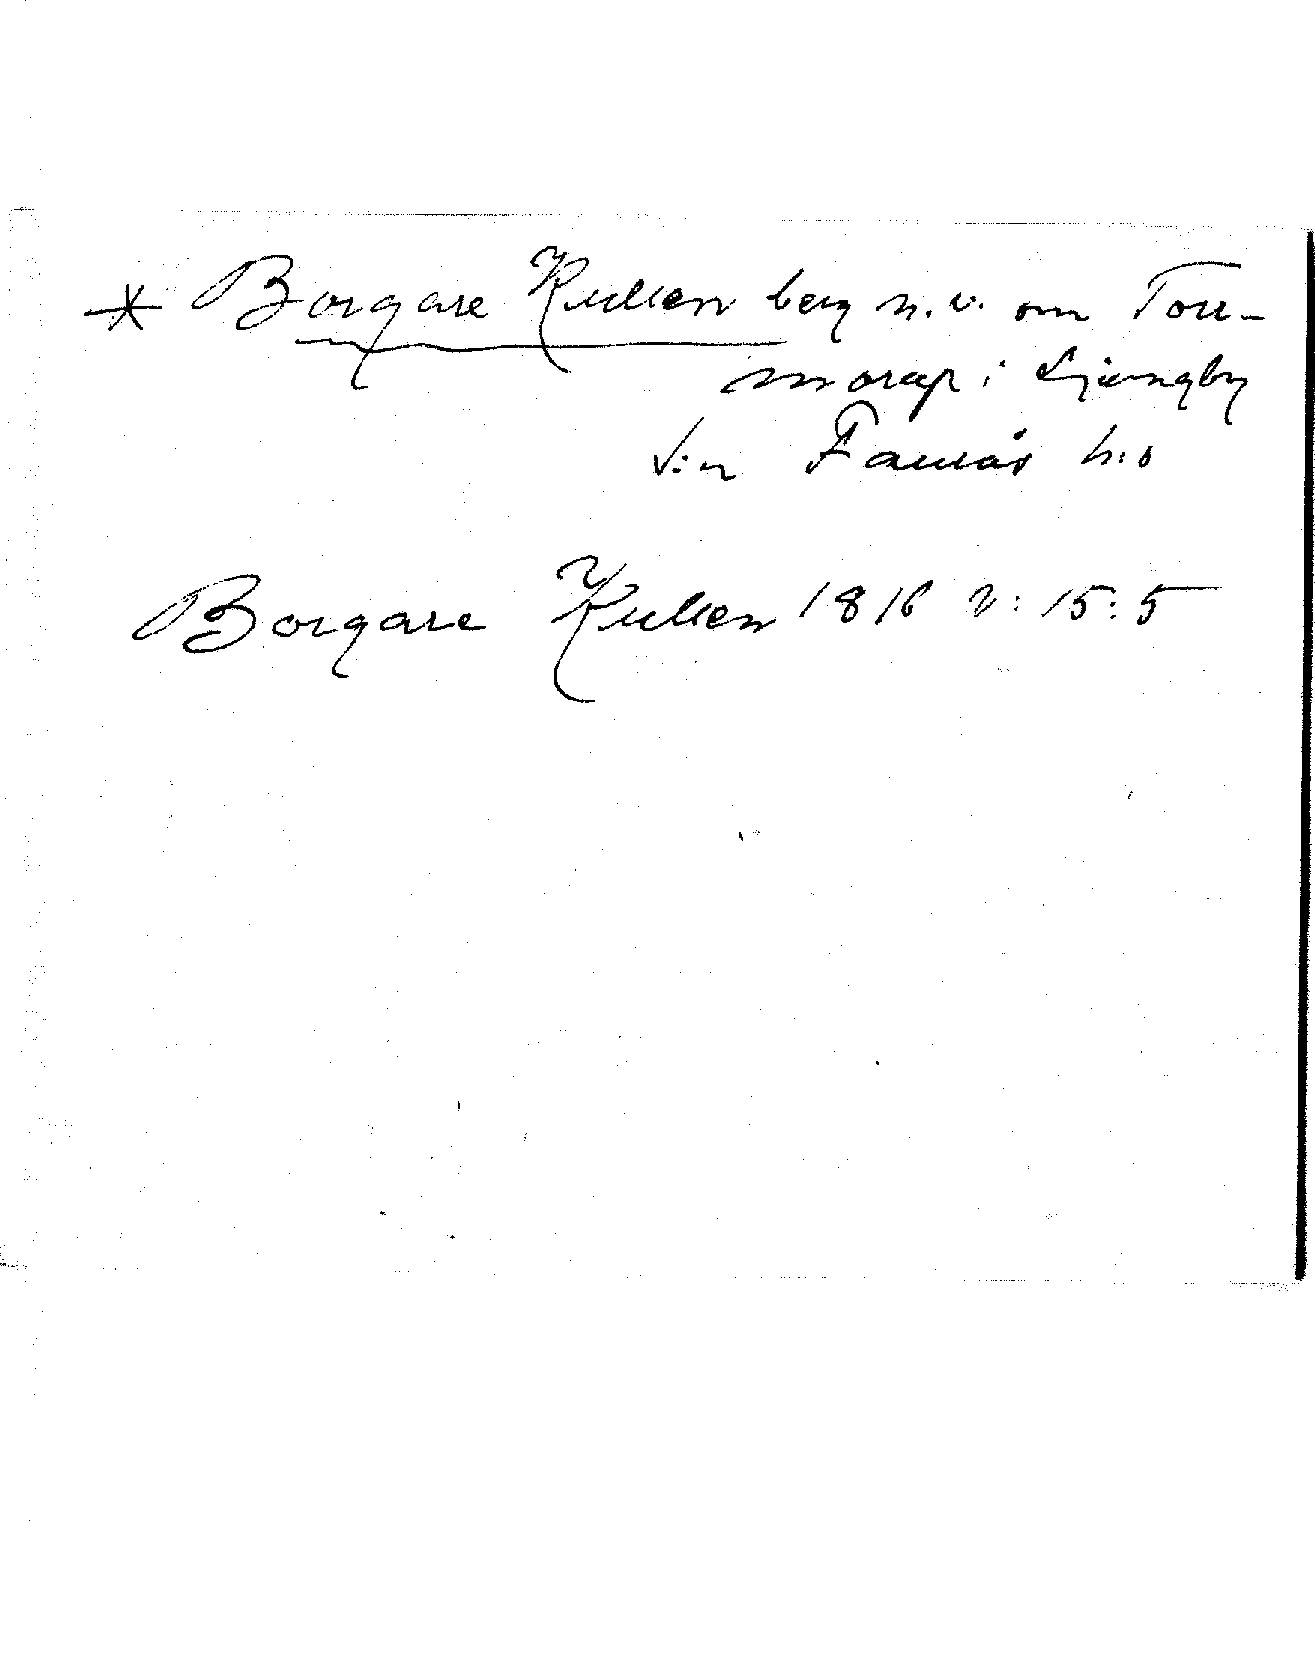 * Borgare Kullen berg n.v. om Torr-
morap i Ljungby
s:n Faurås h:d
Borgare Kullen 1816 2: 15:5